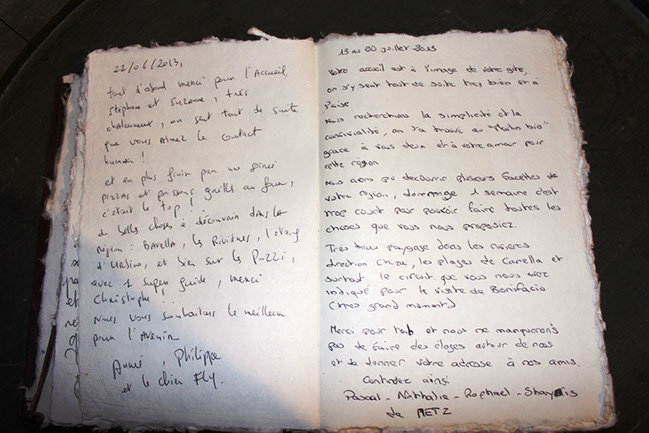 22/06/2013,
tout d'abord merci pour l'Accueil,
Stéphane et Suzanne, très
chaleureux, on sent tout de suite
que vous aimez le contact
humain !
et en plus finir par une soirée
pizzas et poissons grillés au four,
c'était le top !
de belles choses à découvrir dans la
région : Bavella, les Rivières, l'étang
d'Urbino, et bien sur les Pozzi,
avec 1 super guide, merci
Christophe
Nous vous souhaitons le meilleur
pour l'Avenir
Annie, Philippe
et le chien Fly.
13 au 20 juillet 2013
Votre accueil est à l'image de votre gîte,
on s'y sent tout de suite très bien et à
l'aise
Nous recherchions la simplicité et la
convivialité, on l'a trouvé au "Matin bio"
grâce à vous deux et à votre amour pour
cette région
Nous avons pu découvrir plusieurs facettes de
votre région, dommage 1 semaine c'est
trop court pour pouvoir faire toutes les
choses que vous nous proposiez.
Très beau paysage dans les rivières
direction Chiza, les plages de Canella et
surtout le circuit que vous nous avez
indiqué pour la visite de Bonifacio
(très grand moment)
Merci pour tout et nous ne manquerons
pas de faire des éloges autour de nous
et de donner votre adresse à nos amis.
Continuez ainsi
Pascal - Nathalie - Raphael -
de METZ